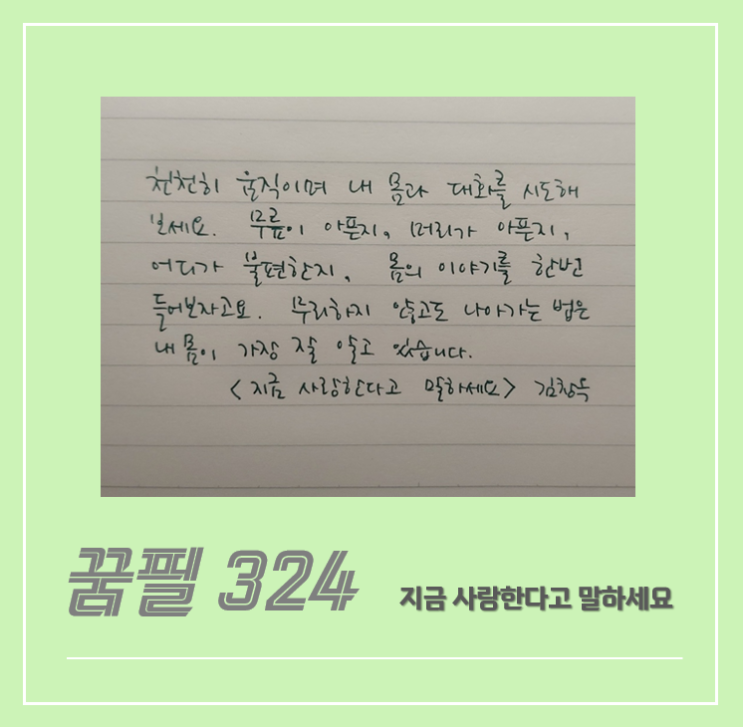 천천히 움직이며 내 몸과 대화를 시도해
보세요. 무릎이 아픈지, 머리가 아픈지,
어디가 불편한지, 몸의 이야기를 한번
들어보자고요. 무리하지 않고도 나아가는 법은
내 몸이 가장 잘 알고 있습니다.
<지금 사랑한다고 말하세요> 김창옥
꿈필 324
지금 사랑한다고 말하세요